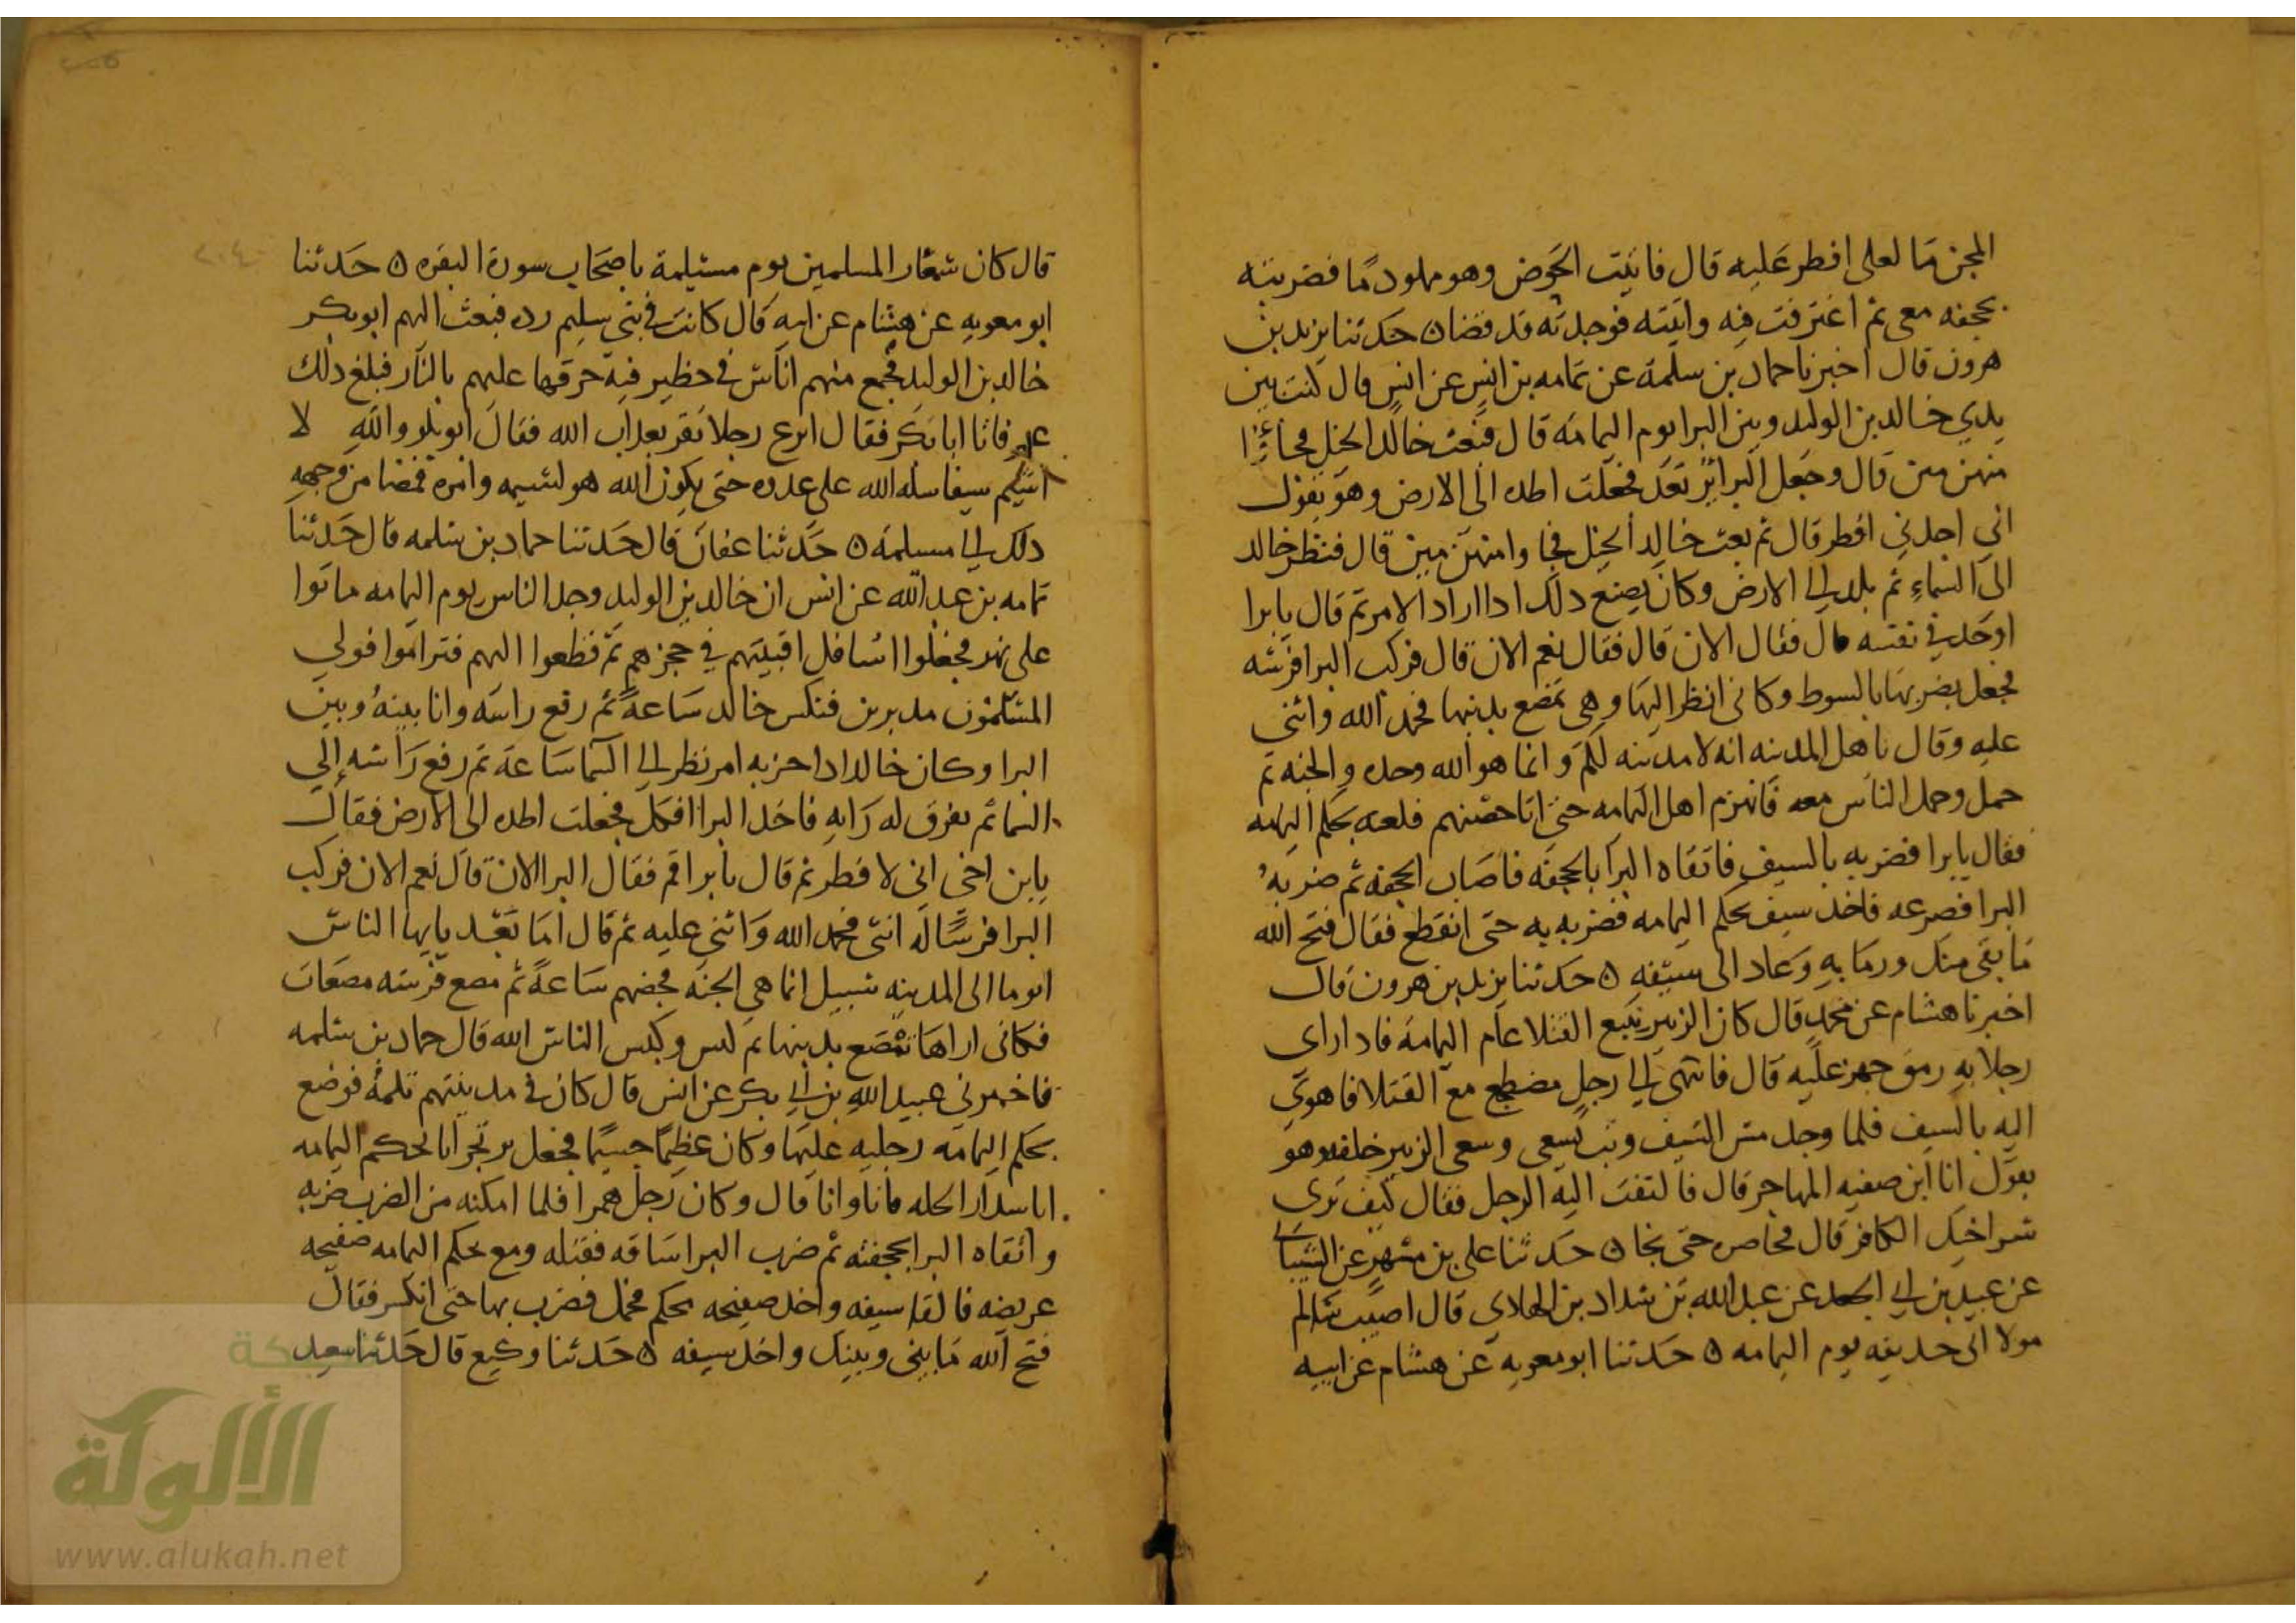 المجن ما لعلى افطر عليه قال فاتيت الحوض وهو مملو دما فضربته
بحجفه معى ثم اغترفت فيه واتيته فوجدته قد قضا ن حدثنا يزيد بن
هرون قال اخبرنا حماد بن سلمة عن ثمامه بن انس عن انس قال كنت بين
يدي خالد بن الوليد وبين البرا يوم اليمامه قال فبعث خالد الخيل فجاؤا
منهزمين قال وجعل البرا يرعد فجعلت اطده الى الارض وهو يقول
اني اجدني افطر قال ثم بعث خالد الخيل فجاوا منهزمين قال فنظر خالد
الى السماء ثم بلد الى الارض وكان يصنع ذلك اذا اراد الامر ثم قال يا برا
اوجد في نفسه قال فقال الان قال فقال نعم الان قال فركب البرا فرسه
فجعل يضربها بالسوط وكانى انظر اليها وهى تمصع بذنبها فحمد الله واثنى
عليه وقال يا اهل المدينه انه لا مدينه لكم وانما هو الله وحده والجنه ثم
حمل وحمل الناس معه فانهزم اهل اليمامه حتى اتا حصنهم فلقيه محكم اليمامه
فقال يا برا فضربه بالسيف فاتقاه البرا بالحجفه فاصاب الحجفه ثم ضربه
البرا فصرعه فاخذ سيف محكم اليمامه فضربه به حتى انقطع فقال قبح الله
ما بقى منك ورما به وعاد الى سيفه ن حدثنا يزيد بن هرون قال
اخبرنا هشام عن محمد قال كان الزبير يتبع القتلا عام اليمامه فاذا راى
رجلا به رمق جهز عليه قال فانتهى الى رجل مضطجع مع القتلا فاهوى
اليه بالسيف فلما وجد مس السيف وثب يسعى وسعى الزبير خلفه وهو
يقول انا ابن صفيه المهاجر قال فالتفت اليه الرجل فقال كيف ترى
شد اخيك الكافر قال فحاصره حتى نجا ن حدثنا على بن مسهر عن الشيبانى
عن عبيد بن ابى الجعد عن عبد الله بن شداد بن الهادي قال اصيب سالم
مولا ابى حذيفه يوم اليمامه ن حدثنا ابو معويه عن هشام عن ابيه
قال كان شعار المسلمين يوم مسيلمة يا صحاب سورة البقره ن حدثنا
ابو معويه عن هشام عن ابيه قال كانت في بني سليم رده فبعث اليهم ابو بكر
خالد بن الوليد فجمع منهم اناس في حظيره فيه حرقها عليهم بالنار فبلغ ذلك
عمر فاتا ابا بكر فقال انزع رجلا يعذب بعذاب الله فقال ابو بكر والله لا
اشيم سيفا سله الله على عدوه حتى يكون الله هو يشيمه وامره فمضا من وجهه
ذلك الى مسيلمه ن حدثنا عفان قال حدثنا حماد بن سلمه قال حدثنا
ثمامه بن عبد الله عن انس ان خالد بن الوليد وجد الناس يوم اليمامه ماتوا
على نهر فجعلوا اسافل اقبيتهم في حجزهم ثم قطعوا اليهم فتراموا فولى
المسلمون مدبرين فنكس خالد ساعة ثم رفع راسه وانا بينه وبين
البرا وكان خالد اذا حزبه امر نظر الى السما ساعة ثم رفع راسه الي
السما ثم يفرق له رايه فاخذ البرا افكل فجعلت اطده الى الارض فقال
يا بن اخى انى لا فطر ثم قال يا برا قم فقال البرا الان قال نعم الان فركب
البرا فرسًا له انثى فحمد الله واثنى عليه ثم قال اما بعد يايها الناس
انه ما الى المدينه سبيل انما هى الجنه فحضهم ساعة ثم مصع فرسه مصعات
فكانى اراها تمصع بذنبها ثم كبس وكبس الناس الله قال حماد بن سلمه
فاخبرني عبيد الله بن ابى بكر عن انس قال كان في مدينتهم ثلمة فوضع
محكم اليمامه رجليه عليها وكان عظيما جسيما فجعل يرتجز انا محكم اليمامه
انا سداد الحله وانا وانا قال وكان رجل همرا فلما امكنه من الضرب ضربه
واتقاه البرا بحجفته ثم ضرب البرا ساقه فقتله ومع محكم اليمامه صفيحه
عريضه فالقا سيفه واخذ صفيحه محكم فحمل فضرب بها حتى انكسر فقال
قبح الله ما بينى وبينك واخذ سيفه ن حدثنا وكيع قال حدثنا سعيد
شبكة
الألوكة
www.alukah.net